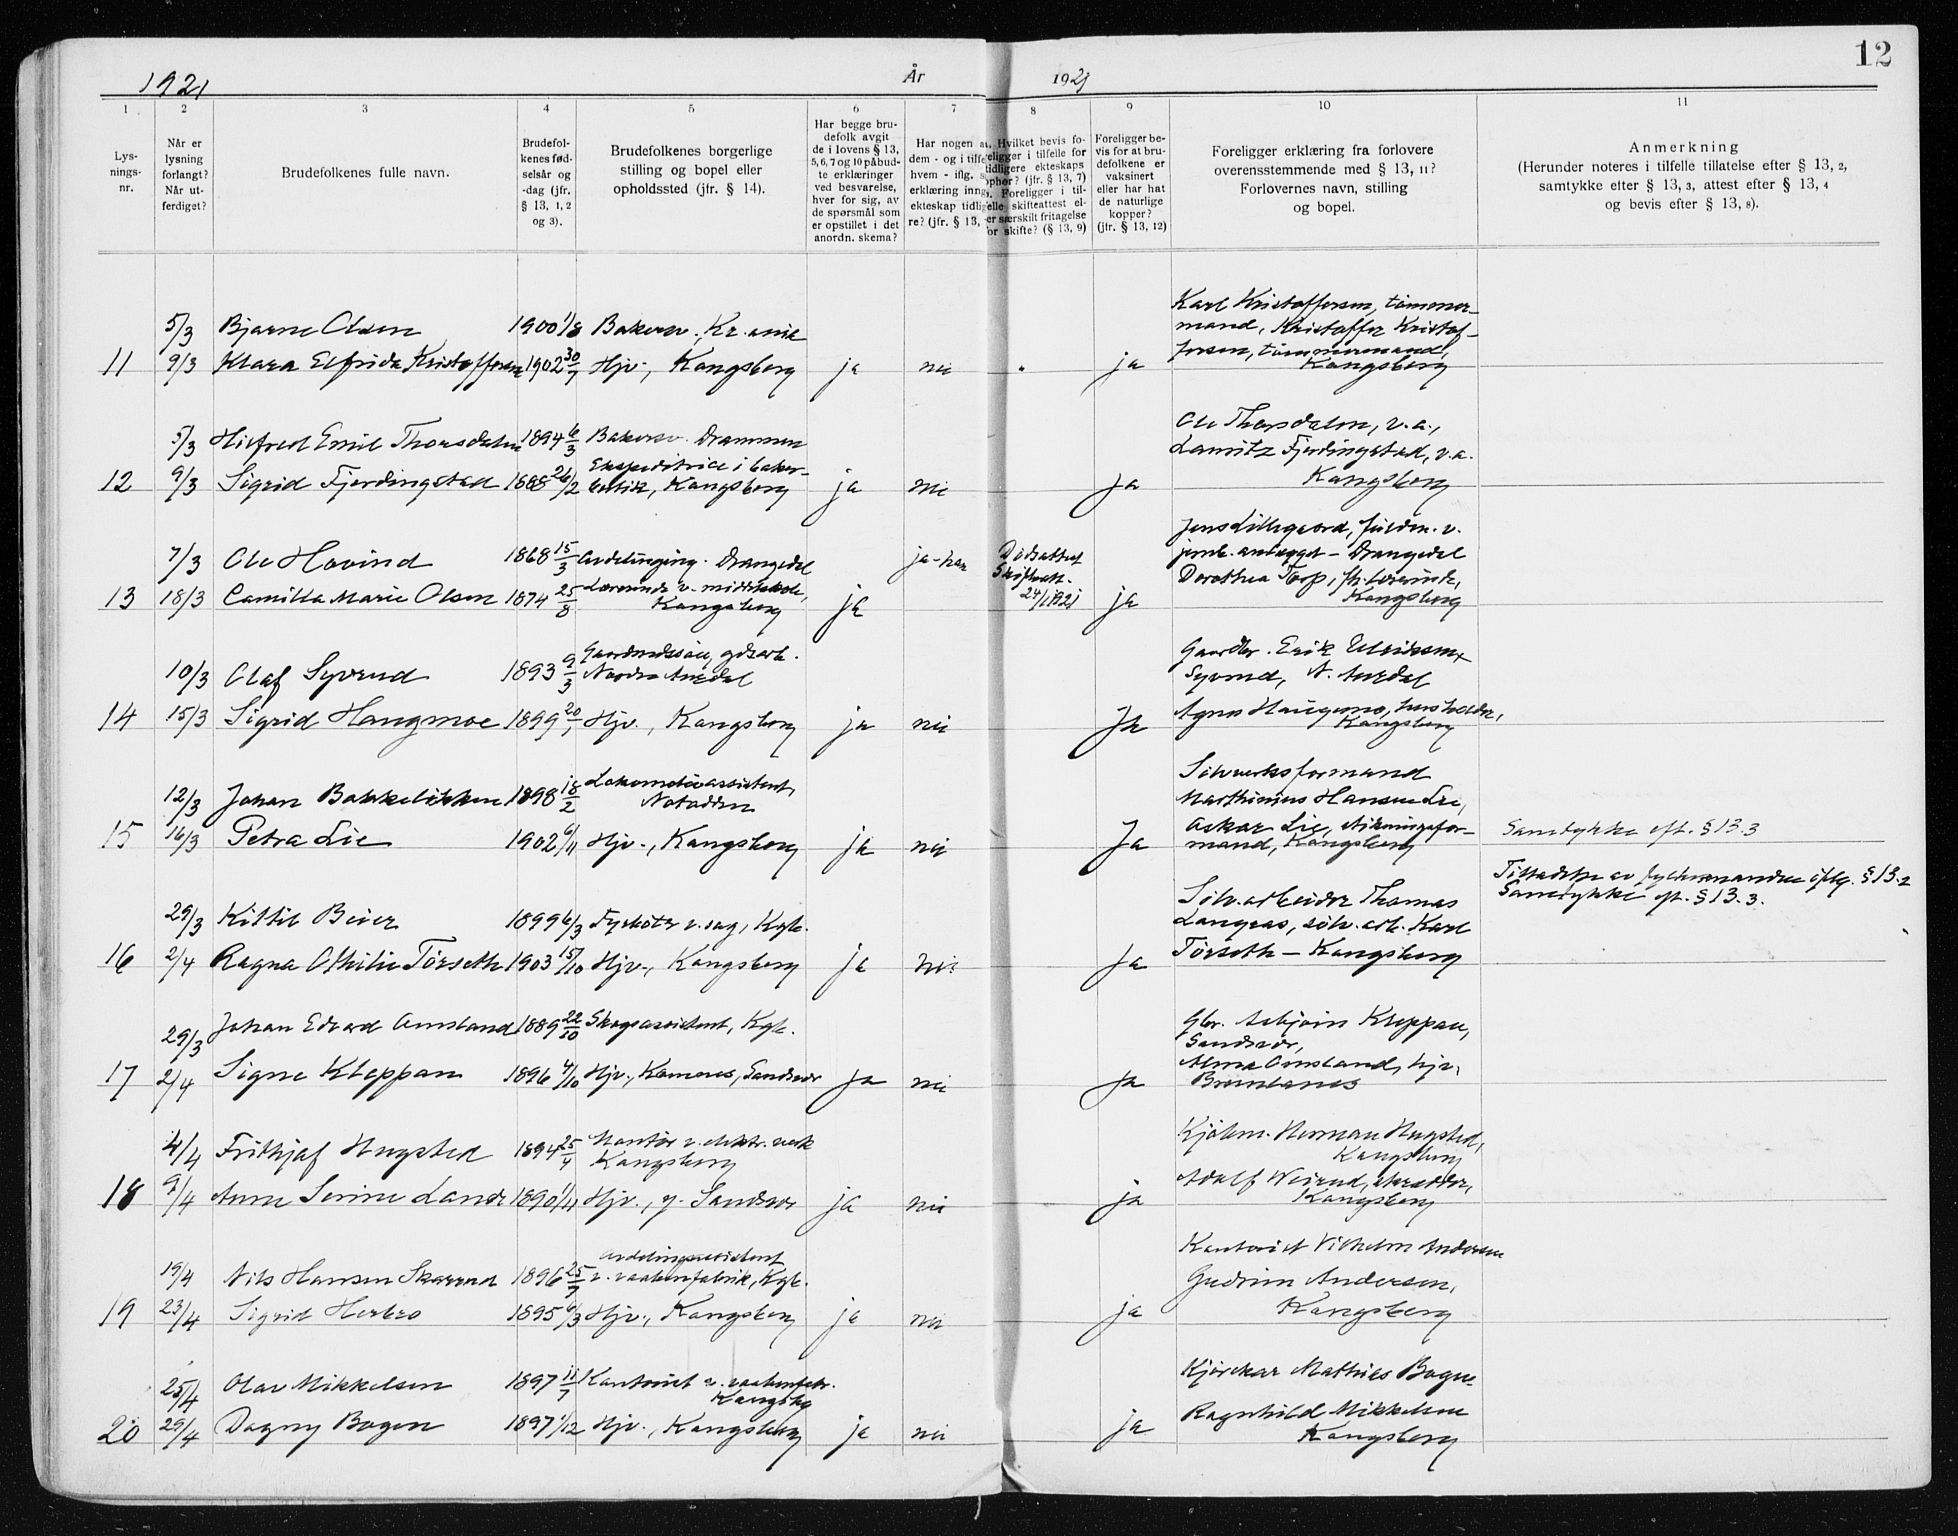 12
1921
År
1921
1
2
3
4
5
6
7
8
9
10
11
Lys-
nings-
nr.
Når er
lysning
forlangt?
Når ut-
ferdiget?
Brudefolkenes fulle navn.
Brudefol-
kenes fød-
selsår og
-dag (jfr.
§ 13, 1, 2
og 3).
Brudefolkenes borgerlige
stilling og bopel eller
opholdssted (jfr. § 14).
Har begge bru-
defolk avgit
de i lovens § 13,
5, 6, 7 og 10 påbud-
te erklæringer
ved besvarelse,
hver for sig, av
de spørsmål som
er opstillet i det
anordn. skema?
Har nogen a
dem - og i tilfe
hvem - iflg. s
erklæring inng
ekteskap tidli
re? (jfr. § 13,
Hvilket bevis fo-
religger i tilfelle for
tidligere ekteskaps
ophør? (jfr. § 13, 7)
Foreligger i til-
felle skifteattest el-
er særskilt fritagelse
for skifte? (§ 13, 9)
Foreligger be-
vis for at bru-
defolkene er
vaksinert
eller har hat
de naturlige
kopper?
(jfr. § 13, 12)
Foreligger erklæring fra forlovere
overensstemmende med § 13, 11?
Forlovernes navn, stilling
og bopel.
Anmerkning
(Herunder noteres i tilfelle tillatelse efter § 13, 2,
samtykke efter § 13, 3, attest efter § 13, 4
og bevis efter § 13, 8).
Karl Kristoffersen, tømmer-
5/3 Bjarne Olsen 1900 1/8 Bakersv. Kr.ania mand, Kristoffer Kristof-
fersen, tømmermand,
11 9/3 Klara Elfrida Kristoffersen 1902 30/7 Hjv., Kongsberg ja nei ja Kongsberg
5/3 Hilfred Emil Thorsdalen 1894 6/3 Bakersv. Drammen Ole Thorsdalen, v.a.,
Ekspeditrice i baker- Lauritz Fjerdingstad, v.a.
12 9/3 Sigrid Fjerdingstad 1888 26/2 butik, Kongsberg ja nei ja Kongsberg
Jens Lillegaard, fuldm. v.
7/3 Ole Hovind 1868 15/3 Avdelingsing. Drangedal ja - han Dødsattest jernb. anlegget - Drangedal
Lærerinde v. middelskole, Skifteatt. Dorothea Torp, fh. lærerinde,
13 18/3 Camilla Marie Olsen 1874 25/8 Kongsberg ja 24/1 1921 ja Kongsberg
Gaardmandssøn, gdsarb. Gaardbr. Erik Ulriksen
10/3 Olaf Syverud 1893 9/3 Nordre Aurdal Syverud, N. Aurdal
14 15/3 Sigrid Haugmoe 1899 20/1 Hjv., Kongsberg ja nei Ja Agnes Haugmo, husholder,
Kongsberg
Lokomotivassistent, Sølvverksformand
12/3 Johan Bakkelikken 1898 18/2 Notodden Marthinius Hansen Lie,
15 16/3 Petra Lie 1902 6/11 Hjv., Kongsberg ja nei Ja Oskar Lie, stikningsfor-
mand, Kongsberg Samtykke eft. § 13.3
Tilladelse av fylkesmanden iflg. § 13.2
Sølv.arbeider Thomas Samtykke eft. § 13.3.
29/3 Kittil Beier 1899 6/3 Fyrbøter v. sag, Kgb. Langeas, sølv. arb. Karl
16 2/4 Ragna Othilie Torseth 1903 15/10 Hjv., Kongsberg ja nei Ja Torseth - Kongsberg
29/3 Johan Edvard Omsland 1889 22/10 Skogassistent, Kgb. Gbr. Asbjørn Kleppan,
Sandsvær,
17 2/4 Signe Kleppan 1896 4/10 Hjv., Komnes, Sandsvær ja nei ja Alma Omsland, hjv.
Brunlanes
4/4 Frithjof Hugsted 1894 25/4 Montør v. elektr. verk Kjøbm. Herman Hugsted,
Kongsberg Kongsberg
18 9/4 Anne Serine Lande 1890 1/11 Hjv., y. Sandsvær ja nei ja Adolf Weirud, skrædder,
Kongsberg
avdelingsassistent Kontorist Vilhelm Andersen
19/4 Nils Hansen Skarrud 1896 25/7 v. vaabenfabrik, Kgb. Gudrun Andersen,
19 23/4 Sigrid Herbro 1895 6/3 Hjv., Kongsberg ja nei ja Kongsberg
25/4 Olav Mikkelsen 1897 11/7 Kontorist v. vaabenfabr. Kjørekar Mathies Bogen
Kongsbg
20 29/4 Dagny Bogen 1897 1/12 Hjv., Kongsberg ja nei ja Ragnhild Mikkelsen
Kongsberg